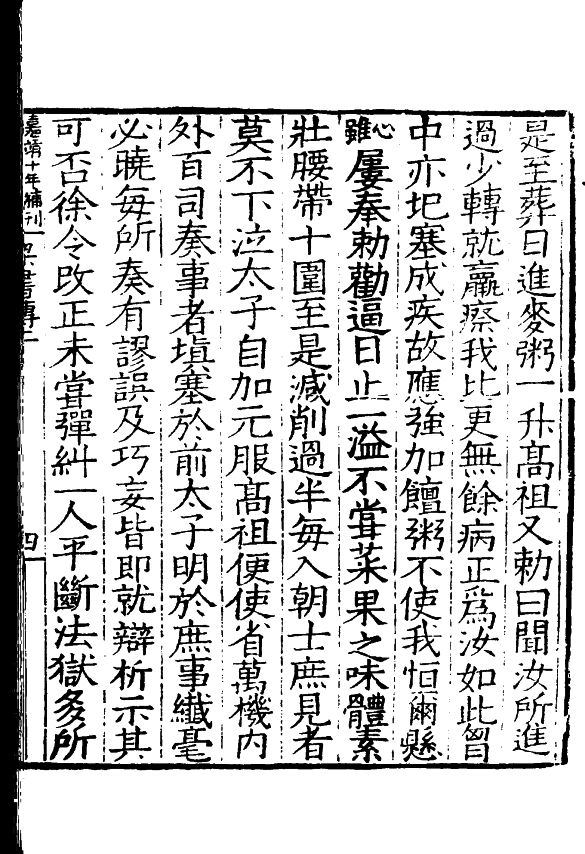 是至葬日進麥粥一升高祖又勅曰聞汝所進
過少轉就羸瘵我比更無餘病正爲汝如此胷
中亦圯塞成疾故應強加饘粥不使我恒爾懸
心雖屢奉勅勸逼日止一溢不甞菜果之味體素
壯腰帶十圍至是減削過半每入朝士庶見者
莫不下泣太子自加元服高祖便使省萬機內
外百司奏事者塡塞於前太子明於庶事纖毫
必曉每所奏有謬誤及巧妄皆即就辯析示其
可否徐令改正未甞彈糾一人平斷法獄多所
嘉靖十年補刊 梁書傳二 四